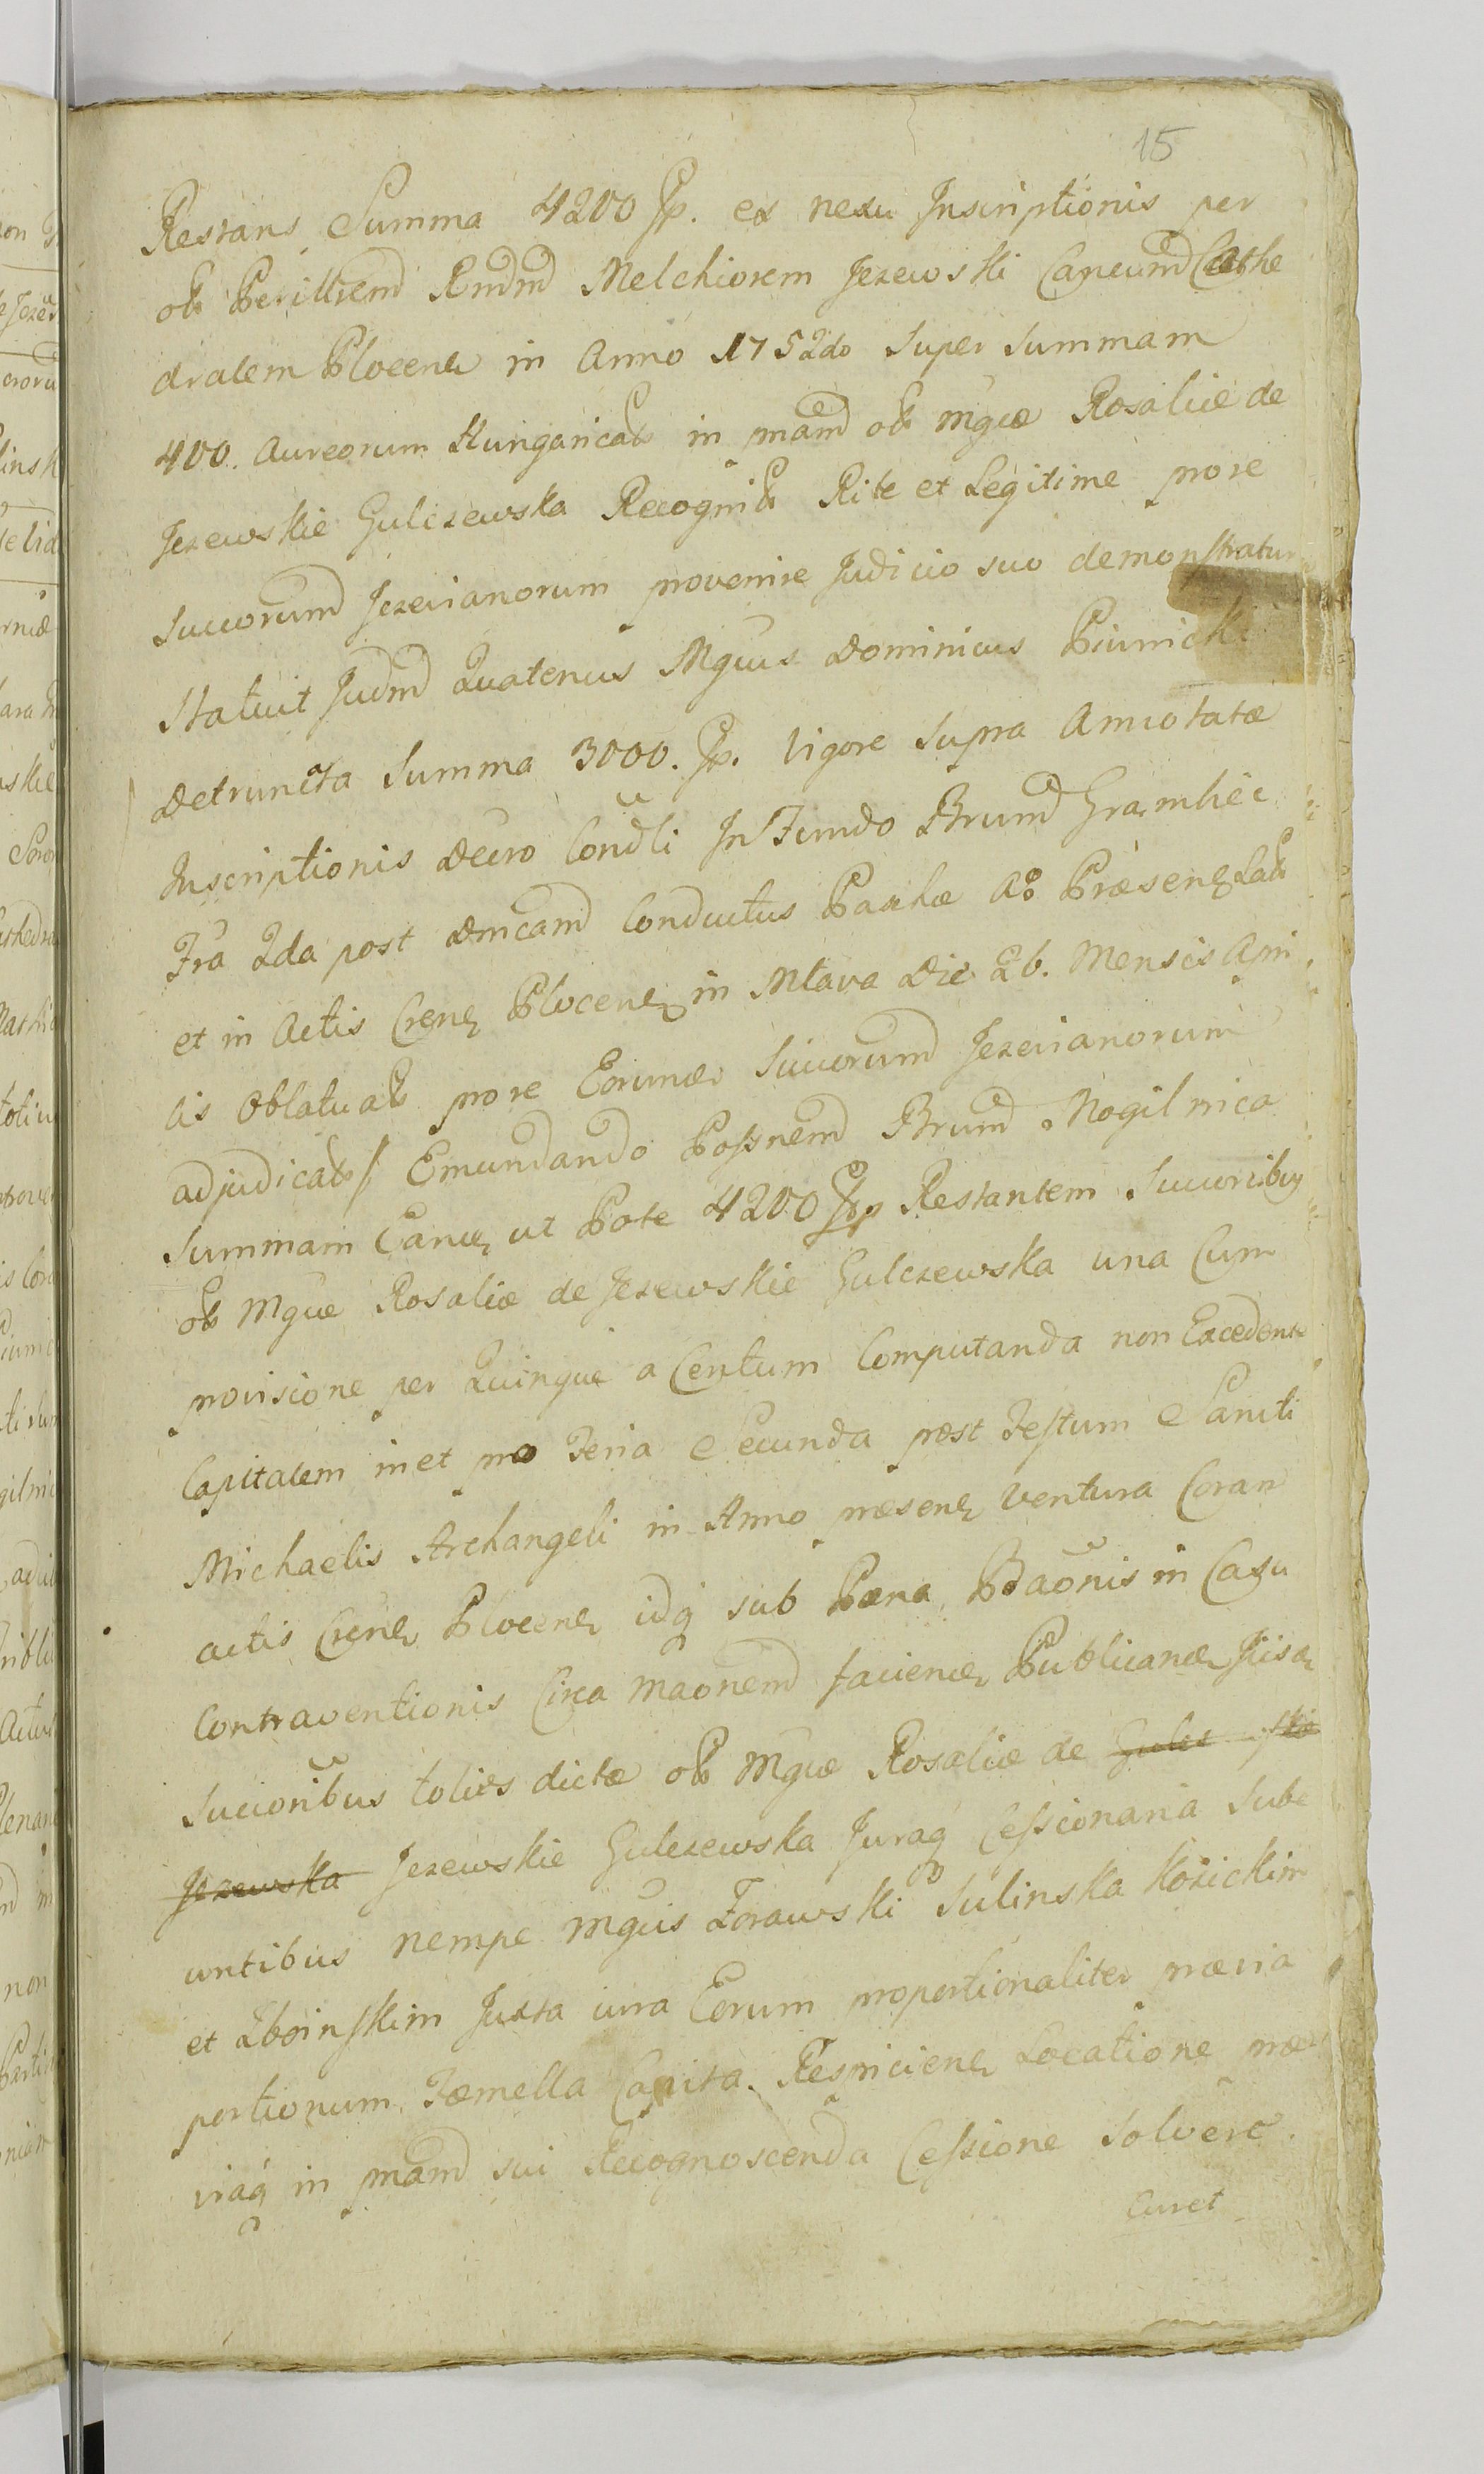 15
Restans Summa 4200 fp. ex nexu Inscriptionis per
ol Perillrem Rndm Melchiorem Jezewski Cancum Cathe
dralem Plocens in Anno 1752do Super Summam
400. Aureorum Hungarical in pnam ol Mgcæ Rosaliæ de
Jezewskie Gulczewska Recognil Rite et Legitime pro re
Succorum Jezevianorum provenire Judicio suo demonstratur
Statuit Judm Quatenus Mgcus Dominicus Piwnicki
Detruncta Summa 3000. fp. Vigore Supra Annotatæ
Inscriptionis Decro Condli In Fundo Brum Gramliec
Fra 2da post Dnicam Conductus Paschæ Ao Præsens Lat
et in Actis Crens Plocens in Mlava Die 26. Mensis Apri
lis Oblatual pro re Eorund Succorum Jezevianorum
adjudical/ Emundando Possnem Brum Mogilnica
Summam Eand ut Pote 4200 fp Restantem Succoribus
ol Mgcæ Rosaliæ de Jezewskie Gulczewska una Cum
provisione per Quinque a Centum Computanda non Excedente
Capitalem in et pro Feria Secunda post Festum Sancti
Michaelis Archangeli in Anno præsens Ventura Coram
actis Crens Plocens idq sub Pæna Baonis in Casu
Contraventionis Circa Maonem faciend Publicand
Succoribus toties dictæ ol Mgcæ Rosaliæ de
Jezewska Jezewskie Gulczewska Juraq Cessionaria Sube
untibus nempe Mgcis Zorawski Sulinska Kozickim
et Zboinskim Juxta iura Eorum proportionaliter prævia
portionum Tæmella Capita Respiciens Locatione præ
viaq in pnam sui Recognoscenda Cessione Solvere.
Curet